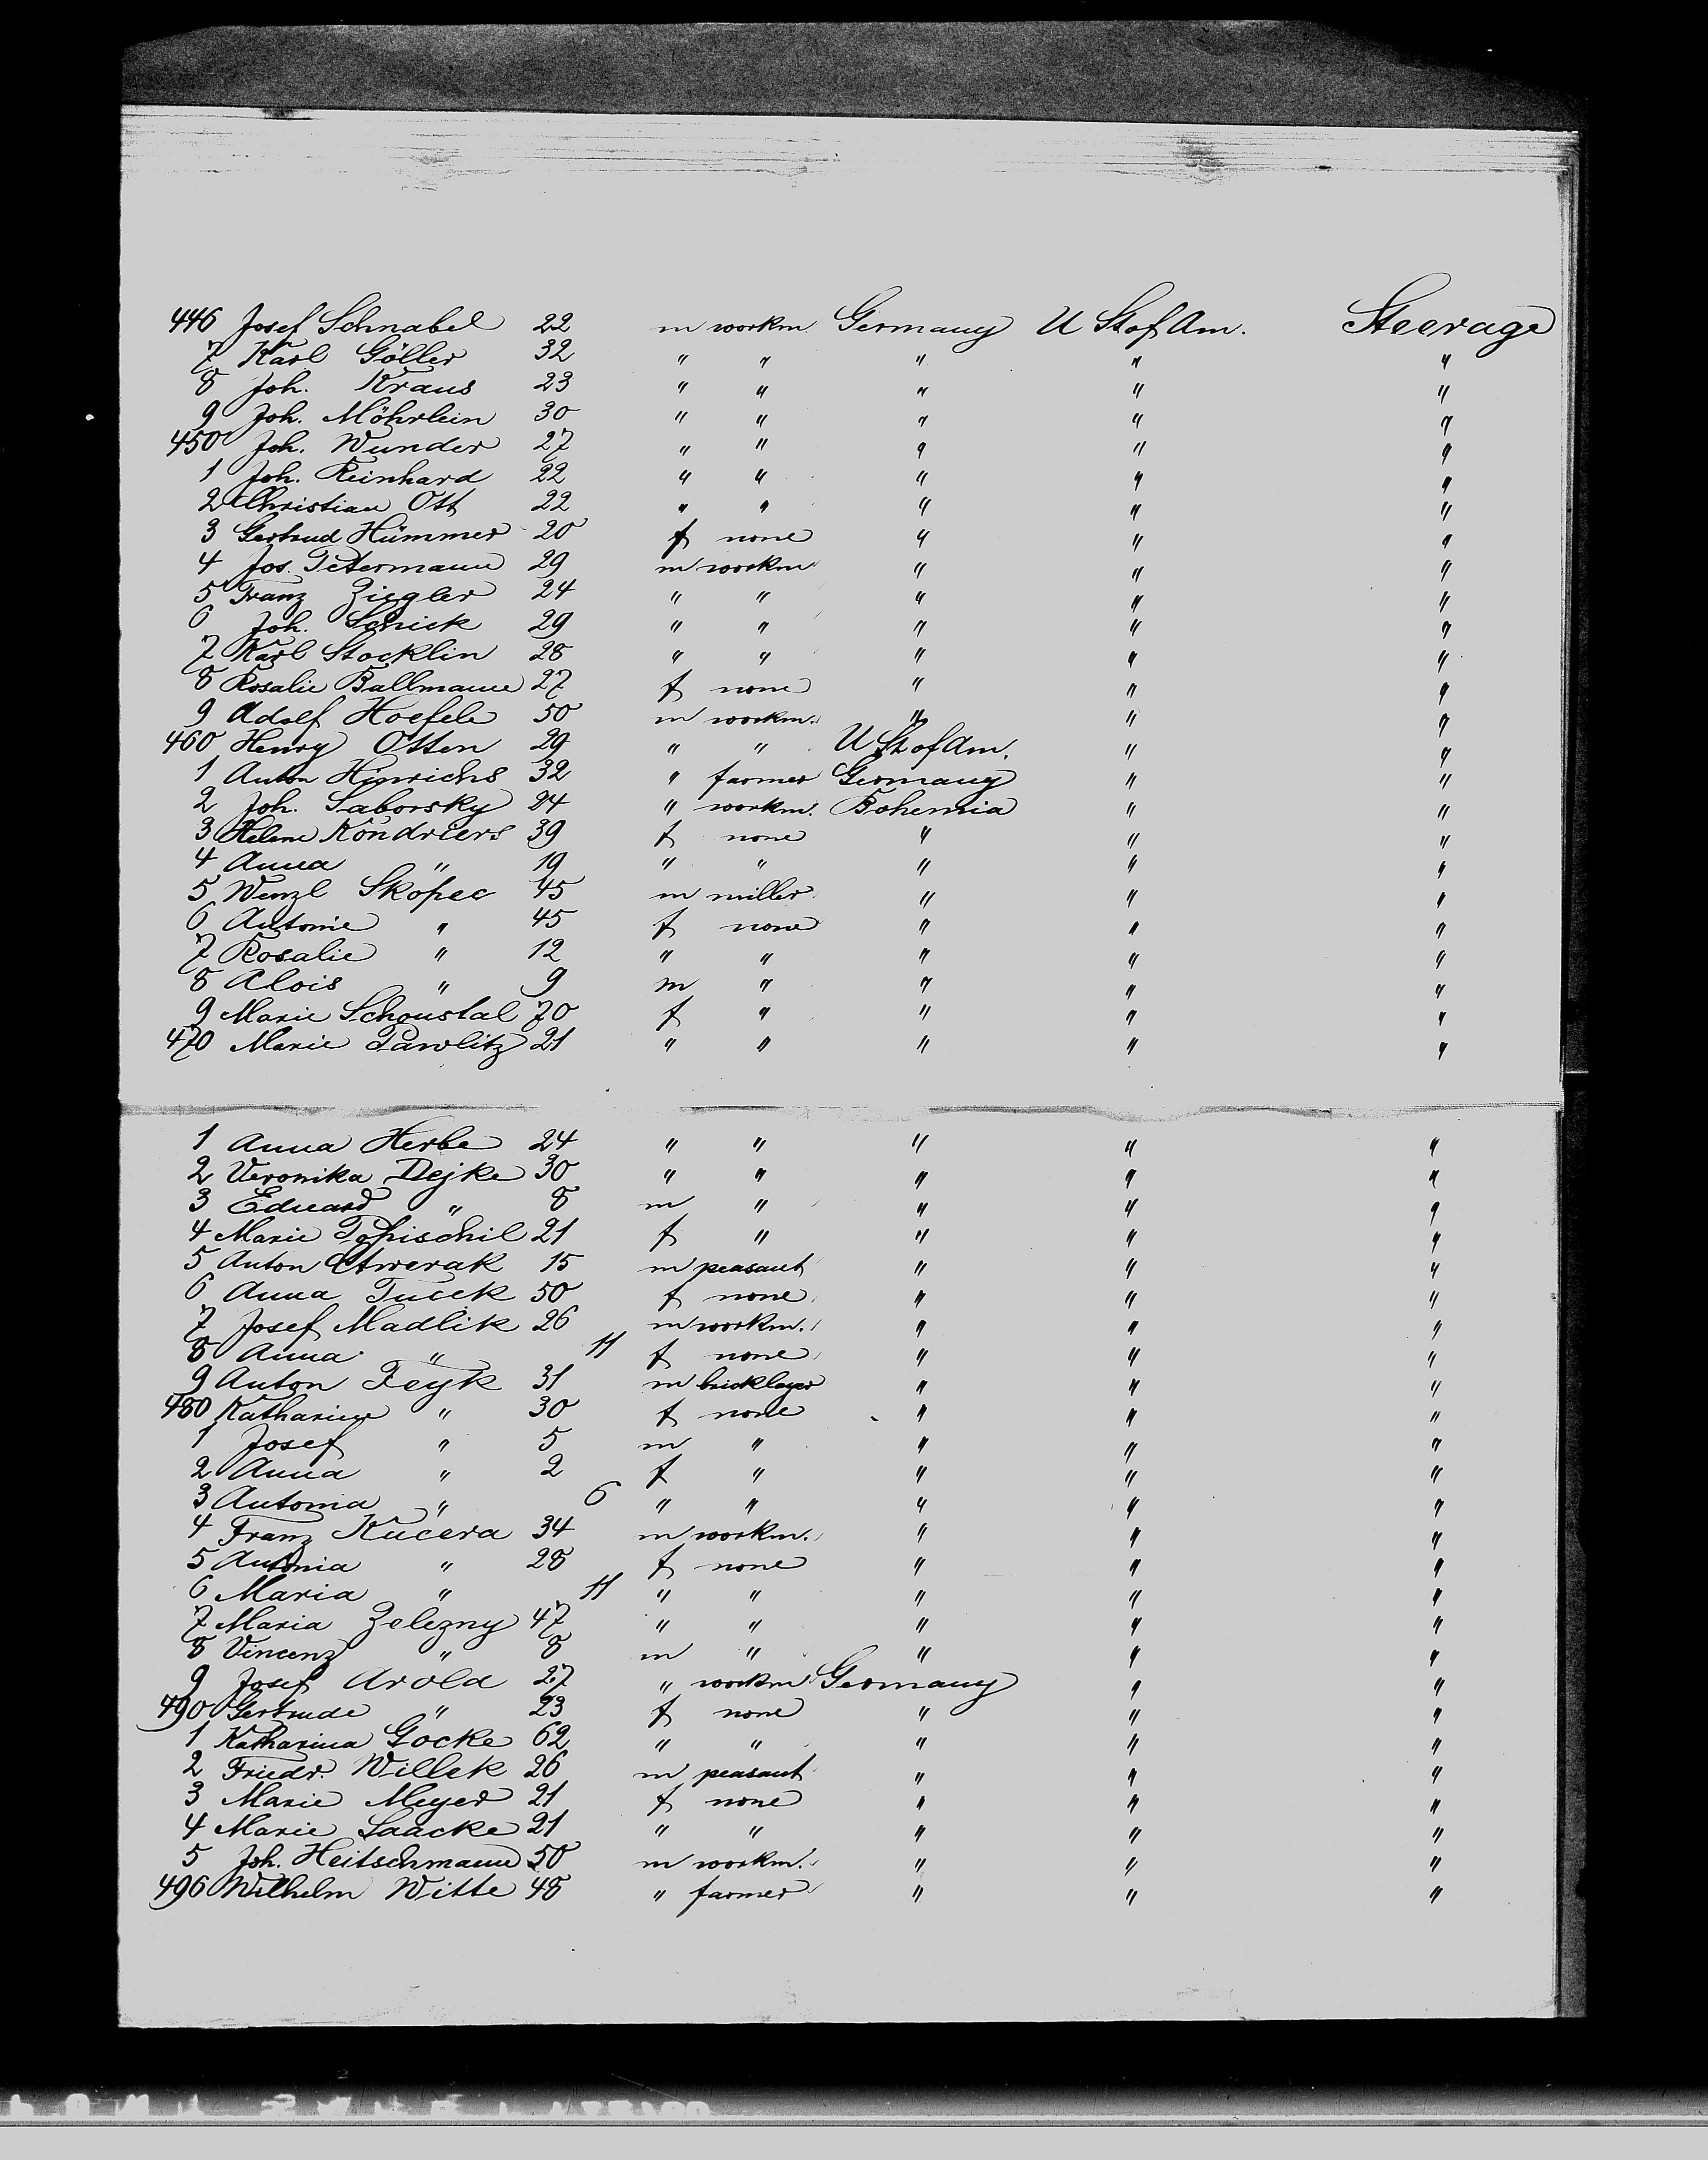 446 Josef Schnabel 22 m workm Germany U St of Am. Steerage
7 Karl Göller 32 " " " " "
8 Joh. Kraus 23 " " " " "
9 Joh. Möhrlein 30 " " " " "
450 Joh. Wunder 27 " " " " "
1 Joh. Reinhard 22 " " " " "
2 Christian Ott 22 " " " " "
3 Gertrud Hümmer 20 f none " " "
4 Jos. Petermann 29 m workm " " "
5 Franz Ziegler 24 " " " " "
6 Joh. Schick 29 " " " " "
7 Karl Stocklin 28 " " " " "
8 Rosalie Ballmann 27 f none " " "
9 Adolf Hoefele 50 m workm. " " "
460 Henry Otten 29 " " U St of Am. " "
1 Anton Hinrichs 32 " farmer Germany " "
2 Joh. Saborsky 24 " workm. Bohemia " "
3 Helene Kondriers 39 f none " " "
4 Anna " 19 " " " " "
5 Wenzl Skopec 45 m miller " " "
6 Antonie " 45 f none " " "
7 Rosalie " 12 " " " " "
8 Alois " 9 m " " " "
9 Marie Schoustal 70 f " " " "
470 Marie Pawlitz 21 " " " " "
1 Anna Herbe 24 " " " " "
2 Veronika Dejke 30 " " " " "
3 Eduard " 8 m " " " "
4 Marie Pohischil 21 f " " " "
5 Anton Ctwerak 15 m peasant " " "
6 Anna Tucek 50 f none " " "
7 Josef Madlik 26 m workm. " " "
8 Anna " 11 f none " " "
9 Anton Feyk 31 m bricklayer " " "
480 Katharine " 30 f none " " "
1 Josef " 5 m " " " "
2 Anna " 2 f " " " "
3 Antonia " 6 " " " " "
4 Franz Kucera 34 m workm. " " "
5 Antonia " 28 f none " " "
6 Maria " 11 " " " " "
7 Maria Zelezny 47 " " " " "
8 Vincenz " 8 m " " " "
9 Josef Arold 27 " workm Germany " "
490 Gertrude " 23 f none " " "
1 Katharina Gocke 62 " " " " "
2 Friedr. Willek 26 m peasant " " "
3 Marie Meyer 21 f none " " "
4 Marie Saacke 21 " " " " "
5 Joh. Heitschmann 50 m workm. " " "
496 Wilhelm Witte 48 " farmer " " "